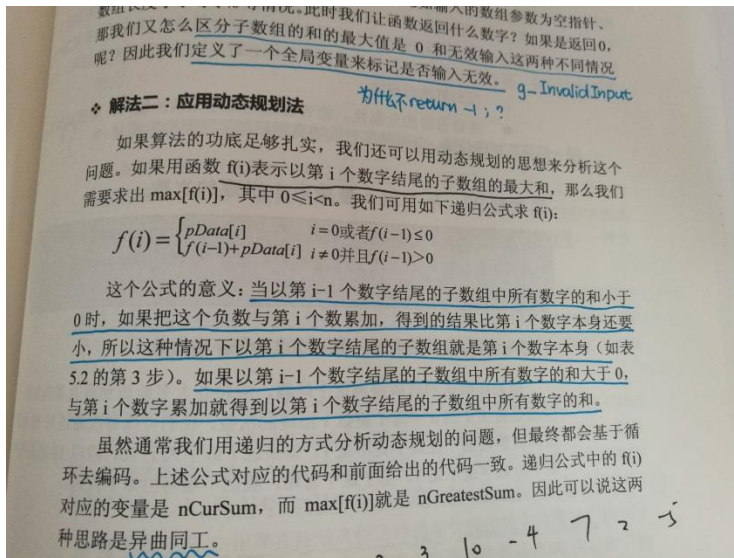 输入的数组参数为空指针、
情况。此时我们让函数返回什么数字？如果是返回0，
那我们又怎么区分子数组的和的最大值是 0 和无效输入这两种不同情况
呢？因此我们定义了一个全局变量来标记是否输入无效。
g_InvalidInput
为什么不return -1；？
❖ 解法二：应用动态规划法
如果算法的功底足够扎实，我们还可以用动态规划的思想来分析这个
问题。如果用函数 f(i)表示以第 i 个数字结尾的子数组的最大和，那么我们
需要求出 max[f(i)]，其中 0≤i<n。我们可用如下递归公式求 f(i)：
f(i)={pData[i] i=0或者f(i-1)≤0
f(i-1)+pData[i] i≠0并且f(i-1)>0
这个公式的意义：当以第 i-1 个数字结尾的子数组中所有数字的和小于
0时，如果把这个负数与第 i 个数累加，得到的结果比第 i 个数字本身还要
小，所以这种情况下以第 i 个数字结尾的子数组就是第 i 个数字本身（如表
5.2 的第 3 步）。如果以第 i-1 个数字结尾的子数组中所有数字的和大于 0，
与第 i 个数字累加就得到以第 i 个数字结尾的子数组中所有数字的和。
虽然通常我们用递归的方式分析动态规划的问题，但最终都会基于循
环去编码。上述公式对应的代码和前面给出的代码一致。递归公式中的 f(i)
对应的变量是 nCurSum，而 max[f(i)]就是 nGreatestSum。因此可以说这两
种思路是异曲同工。
3 10 -4 7 2 -5